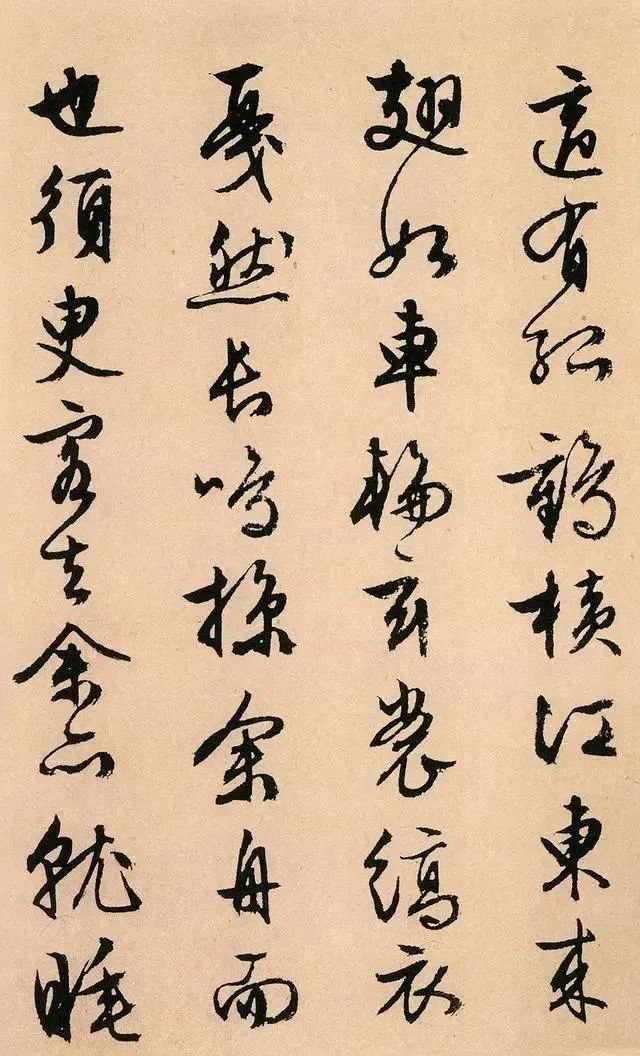 適有孤鶴橫江東來
翅如車輪玄裳縞衣
戛然長鳴掠余舟而
也須臾客去余亦就睡